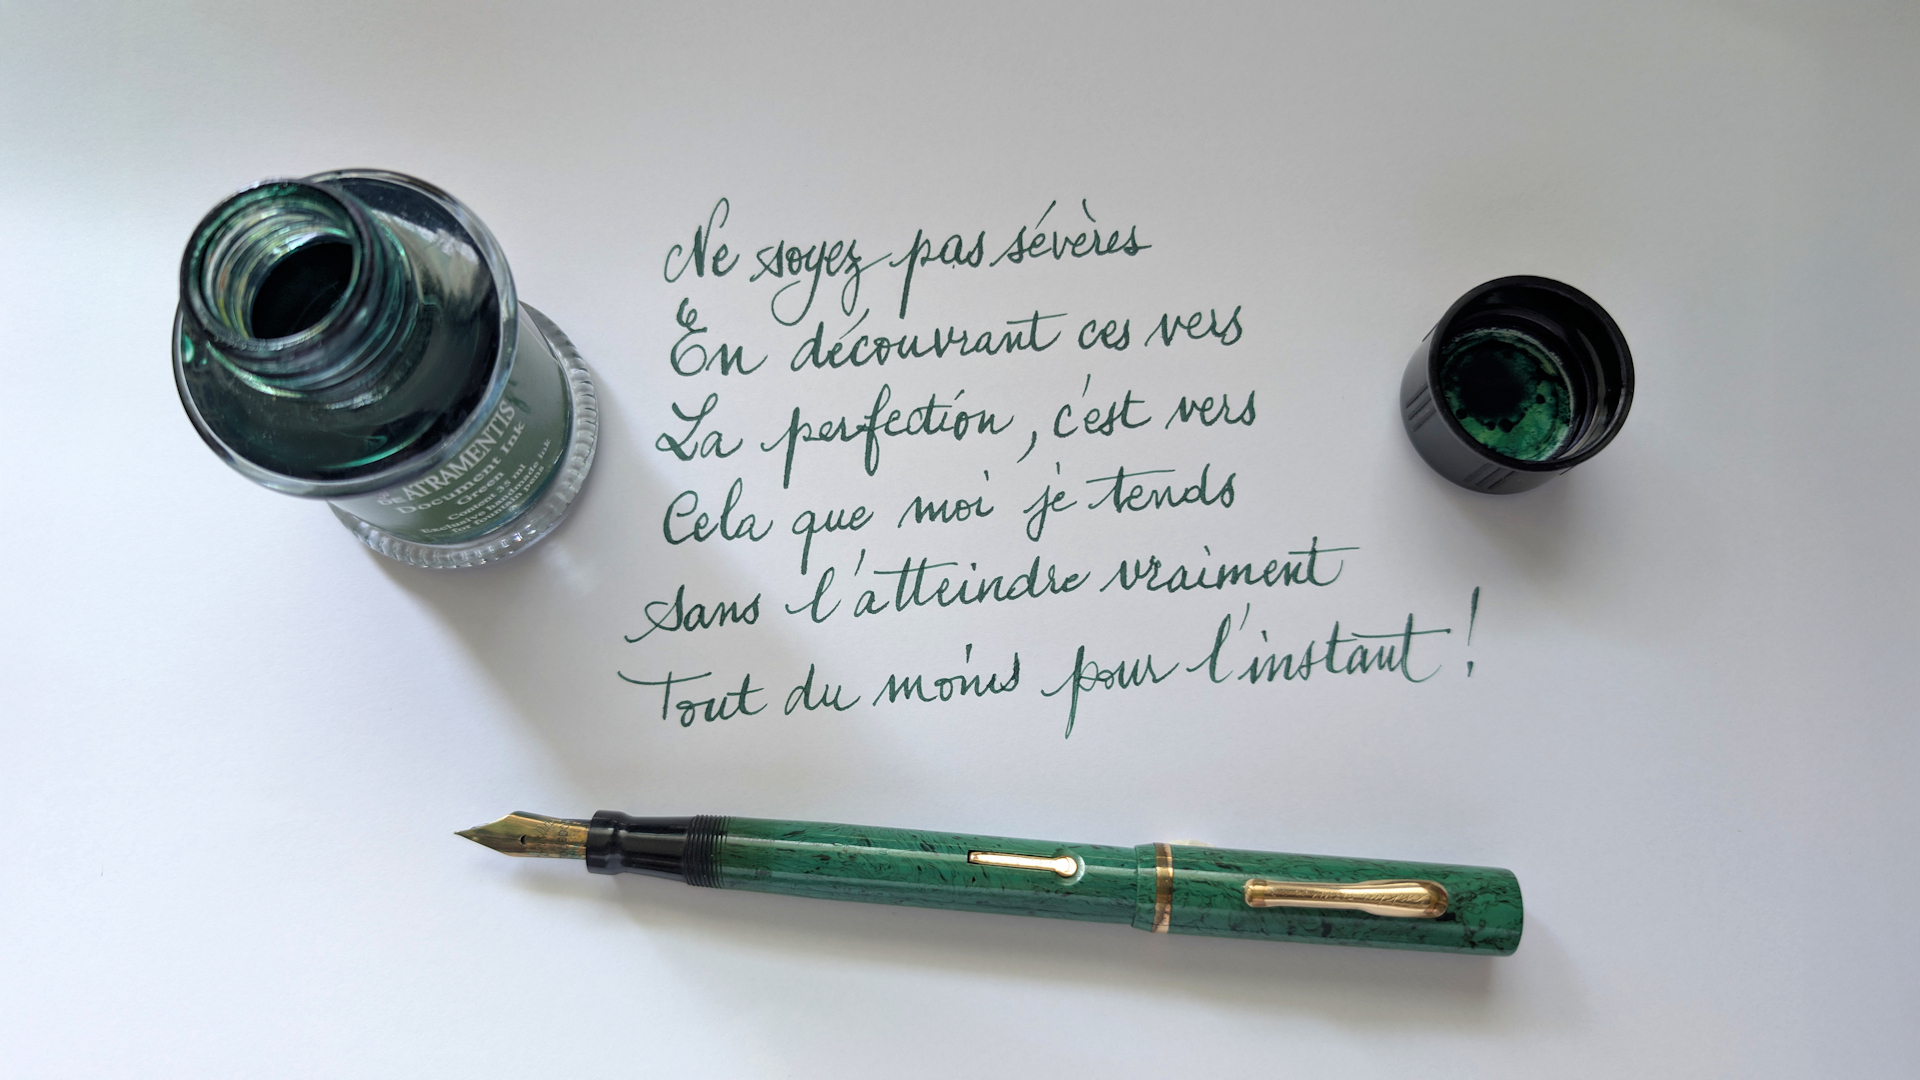 Ne soyez pas sévères
En découvrant ces vers
La perfection, c'est vers
Cela que moi je tends
Sans l'atteindre vraiment
Tout du moins pour l'instant !
DE ATRAMENTIS
Document Ink
Green
Content 35 ml
Exclusive handmade ink
for fountain pens